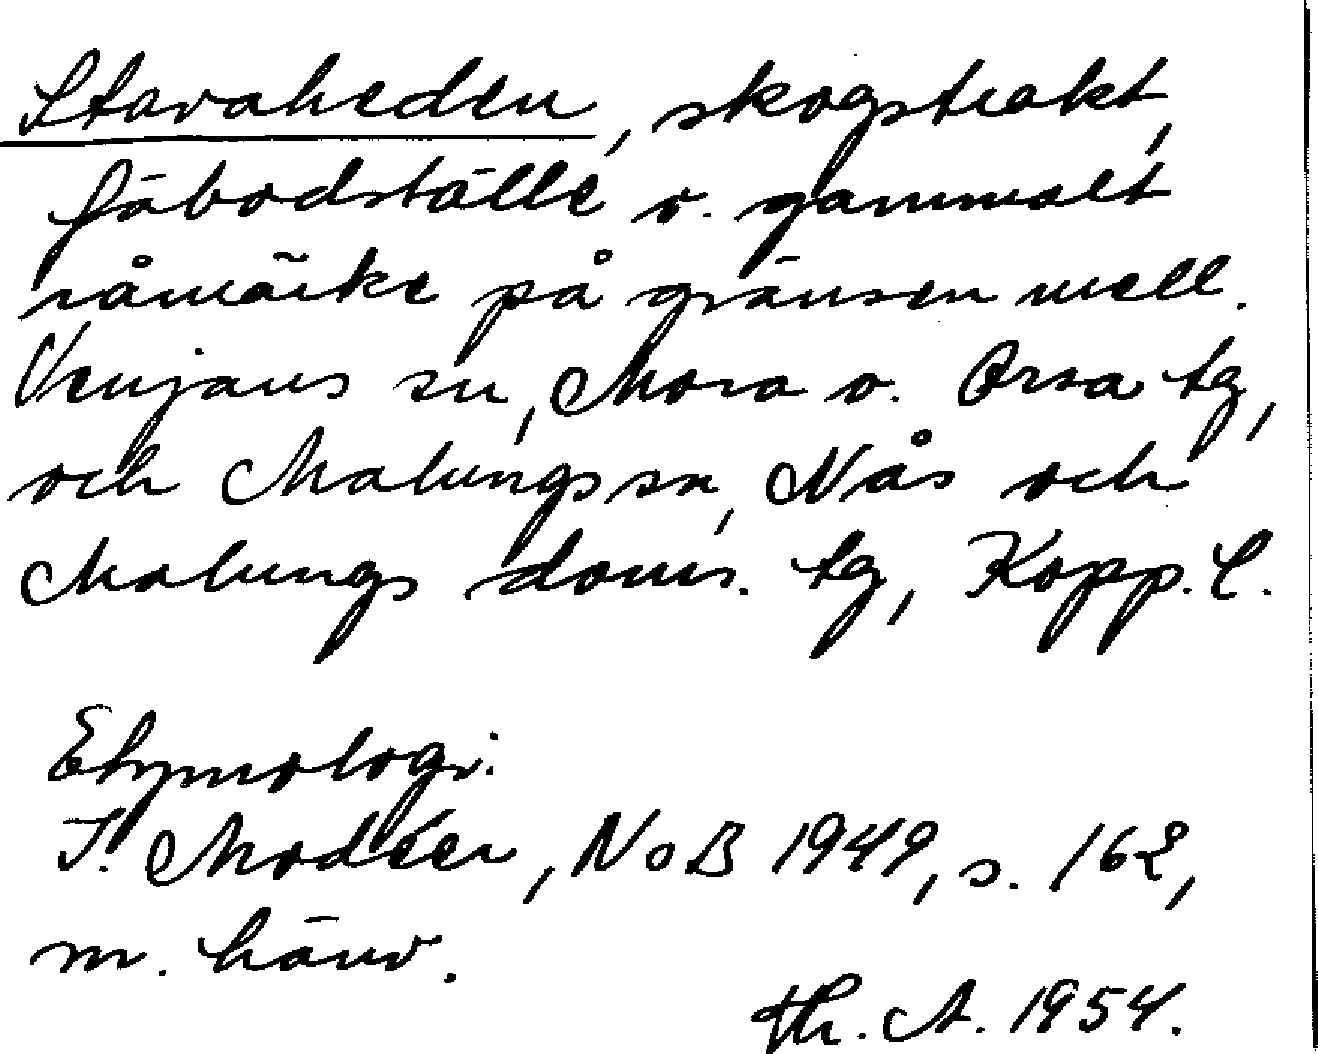 Stavaheden, skogstrakt,
fäbodställe o. gammalt
råmärke på gränsen mell.
Venjans sn, Mora o. Orsa tg,
och Malungs sn, Nås och
Malungs doms. tg, Kopp. l.
Etymologi:
I. Modéer, NoB 1949, s. 162,
m. hänv.
Th. A. 1954.